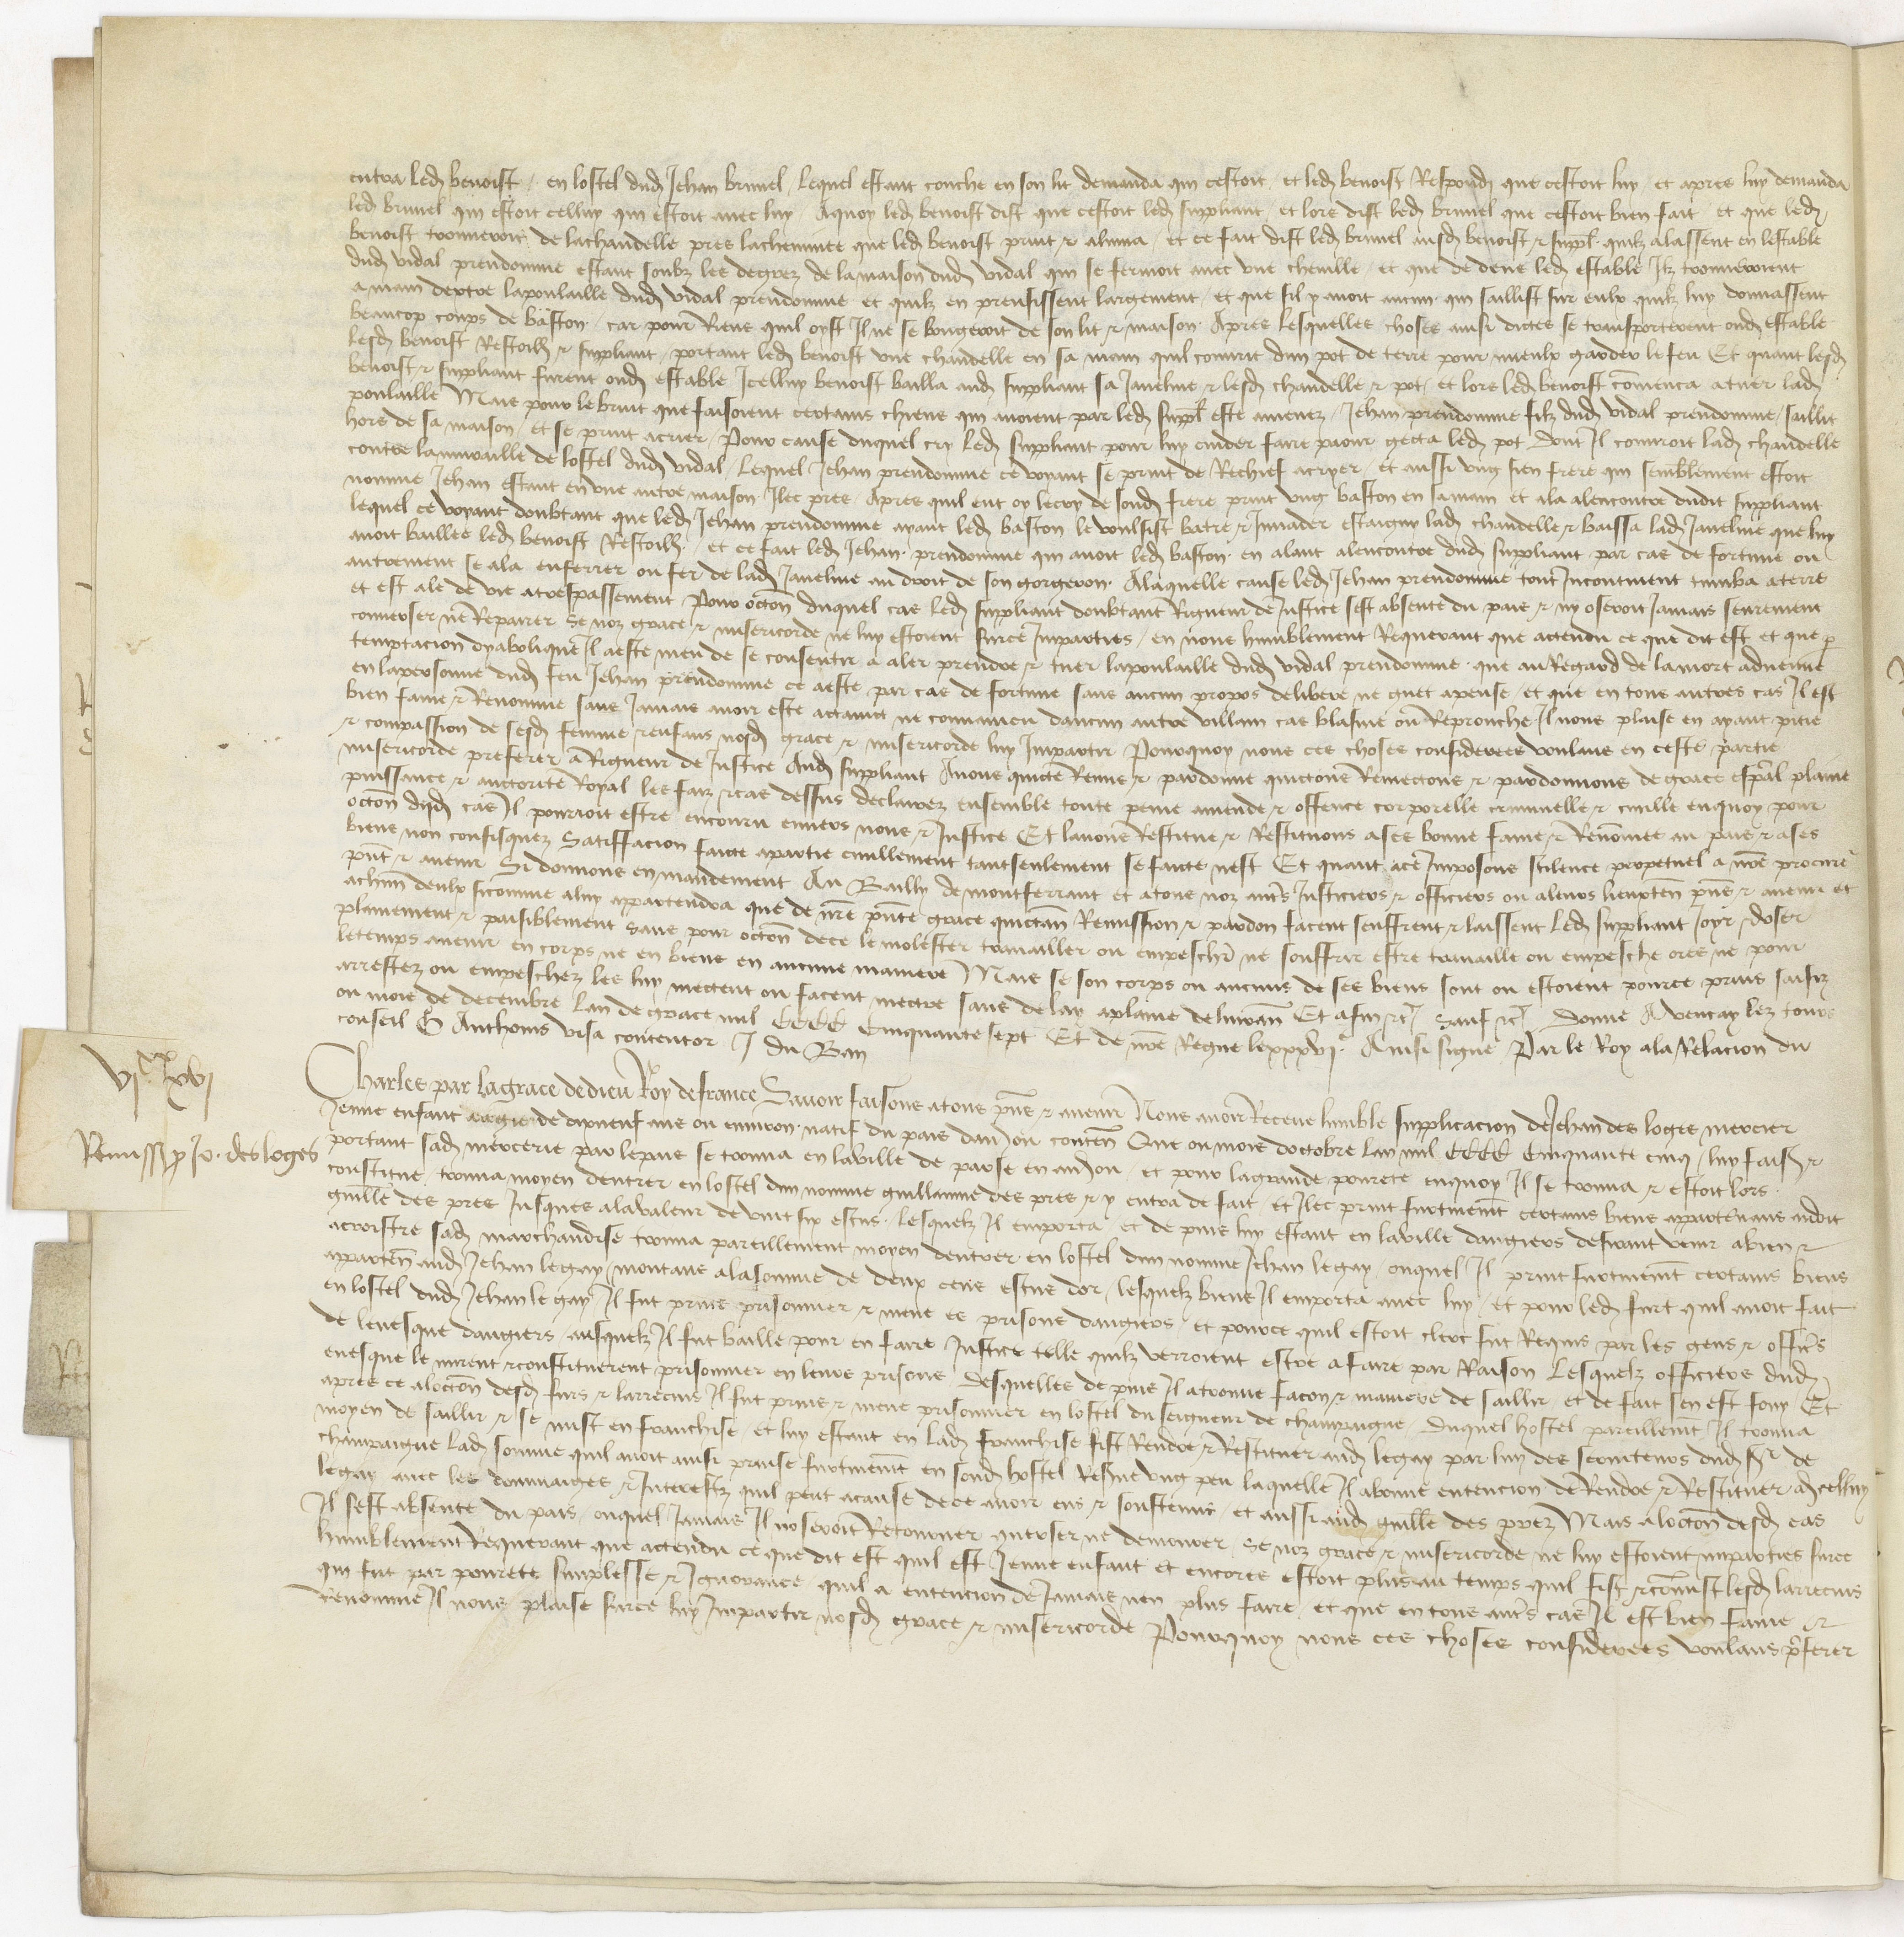 entra led benoist en lostel dud Jehan brunel lequel estant couche en son lit demanda qui cestoit et led benoist Respond que cestoit luy et apres luy demanda
led brunel qui estoit celluy qui estoit avec luy Aquoy led benoist dist que cestoit led suppliant et lors dist led brunel que cestoit bien fait et que led
benoist trouveroit de lachandelle pres lacheminee que led benoist print & aluma et ce fait dist led brunel ausd benoist & suppl quilz alassent en lestable
dud vidal preudomme estant soubz les degrez de lamaison dud vidal qui se fermoit avec une cheville et que dedens led estable Ilz trouveroient
a main dextre lapoulaille dud vidal preudomme et quilz en preussissent largement et que sil y avoit aucun qui saillist sur eulx quilz luy donnassent
beaucop coups de baston car pour Riens quil oyst Il ne se bougeroit de son lit & maison Apres lesquelles choses ainsi dictes se transporterent oud estable
lesd benoist Restoilh & suppliant portant led benoist une chandelle en sa main quil couvrit dun pot de terre pour mieulx garder le feu Et quant lesd
benoist & suppliant furent oud estable Icelluy benoist bailla aud suppliant sa Javeline & lesd chandelle & pot et lors led benoist commenca atuer lad
poulaille Mais pour le bruit que faisoient certains chiens qui avoient par led suppl este amenez Jehan preudomme filz dud vidal preudomme saillit
hors de sa maison et se print acrier Pour cause duquel cry led suppliant pour luy cuider faire paour gecta led pot dont Il couvroit lad chandelle
contre lamuraille de lostel dud vidal lequel Jehan preudomme ce voyant se print de Rechief acryer et aussi ung sien frere qui semblement estoit
nomme Jehan estant en une autre maison Ilec pres Apres quil eut oy lecry de sond frere print ung baston en samain et ala alencontre dudit suppliant
lequel ce voyant doubtant que led Jehan preudomme ayant led baston le voulsist batre & Invader estaigny lad chandelle & baissa lad Javeline que luy
avoit baillee led benoist Restoilh et ce fait led Jehan preudomme qui avoit led baston en alant alencontre dud suppliant par cas de fortune ou
autrement se ala enferrer ou fer de lad Javeline au droit de son gorgeron Alaquelle cause led Jehan preudomme tout Incontinent tumba aterre
et est ale de vie atrespassement Pour occon duquel cas led suppliant doubtant Rigueur de Justice sest absente du pais & ny oseroit Jamais seurement
converser ne Reparer se noz grace & misericorde ne luy estoient surce Imparties en nous humblement Requerant que actendu ce que dit est et que p
temptacion dyabolique Il aeste meu de se consentir a aler prendre & tuer lapoulaille dud vidal preudomme que au Regard de lamort advenue
en lapersonne dud feu Jehan preudomme ce aeste par cas de fortune sans aucun propos delibere ne guet apense et que en tous autres cas Il est
bien fame & Renomme sans Jamais avoir este actaint ne convaincu daucun autre villain cas blasme ou Reprouche Il nous plaise en ayant pitie
& compassion de sesd femme & enfans nosd grace & misericorde luy Impartir Pourquoy nous ces choses considerees voulans en ceste partie
misericorde preferer a Rigueur de Justice Aud suppliant Avons quicte Remis & pardonne quictons Remectons & pardonnons de grace espal plaine
puissance & auctorite Royal les faiz & cas dessus declairez ensemble toute peine amende & offence corporelle criminelle & civille enquoy pour
occon dud cas Il pourroit estre encouru envers nous & Justice Et lavons Restitue & Restituons a ses bonne fame & Renommee au pais & ases
biens non confisquez Satiffacion faicte apartie civillement tantseulement se faicte nest Et quant ace Imposons silence perpetuel a nre procure
pnt & avenir Si donnons en mandement Au Bailly de montferrant et atous noz autrs Justiciers & officiers ou aleurs lieuxten pns & avenir et
achun deulx sicomme aluy appartendra que de nre pnte grace quictan Remission & pardon facent seuffrent & laissent led suppliant Joyr & user
plainement & paisiblement sans pour occon dece le molester travailler ou empescher ne souffrir estre travaille ou empesche ores ne pour
letemps avenir en corps ne en biens en aucune maniere Mais se son corps ou aucuns de ses biens sont ou estoient pource prins saisiz
arrestez ou empeschez les luy mectent ou facent mectre sans delay aplaine delivran Et afin &c Sauf &c Donne A vencay lez tours
ou mois de decembre Lan de grace mil CCCC Cinquante sept Et de nre Regne lexxxvi e Ainsi signe Par le Roy ala Relacion du
conseil G Anthonis visa contentor J du Ban
Charles par lagrace dedieu Roy defrance Savoir faisons atous pns & avenir Nous avoir Receue humble supplicacion de Jehan des loges mercier
VIxx XVI
Remissio Jo. des loges
Jeune enfant aagie de dixneuf ans ou environ natif du pais danjou conten Que ou mois doctobre lan mil CCCC Cinquante cinq luy faist &
portant sad mercerie par lepais se trouva en laville de parse en anjou et pour lagrande povrete enquoy Il se trouva & estoit lors
constitue trouva moyen dentrer en lostel dun nomme guillaume des pres & y entra de fait et Ilec print furtivement certains biens appartenans audit
guille des pres Jusques alavaleur de vint six escus lesquelz Il emporta et depuis luy estant en laville dangiers desirant venir abien &
acroistre sad marchandise trouva pareillement moyen dentrer en lostel dun nomme Jehan legay ouquel Il print furtivemt certains biens
apparten aud Jehan legay montans alasomme de deux cens escus dor lesquelz biens Il emporta avec luy et pour led furt quil avoit fait
en lostel dud Jehan le gay Il fut prins prisonnier & mene es prisons dangiers et pource quil estoit clerc fut Requis par les gens & officrs
de levesque dangiers ausquelz Il fut baille pour en faire Justice telle quilz verroient estre afaire par Raison Lesquelz officiers dud
evesque le mirent & constituerent prisonnier en leurs prisons Desquelles depuis Il atrouve facon & maniere de saillir et de fait sen est fouy Et
apres ce aloccon desd furs & larrecins Il fut prins & mene prisonnier en lostel du seigneur de champaigne Duquel hostel pareillemt Il trouva
moyen de saillir & se mist en franchise et luy estant en lad franchise fist Rendre & Restituer aud legay par luy des serviteurs dud sr de
champaigne lad somme quil avoit ainsi prinse furtivemt en sond hostel Resme ung peu laquelle Il abonne entencion de Rendre & Restituer a Icelluy
legay avec les dommaiges & Interestz quil peut acause dece avoir eus & soustenus et aussi aud guille des prez Mais aloccon desd cas
Il sest absente du pais ouquel Jamais Il noseroit Retourner converser ne demourer se noz grace & misericorde ne luy estoient imparties surce
humblement Requerant que actendu ce que dit est quil est Jeune enfant et encores estoit plus au temps quil fist & commist lesd larrecins
qui fut par povrete simplesse & Ignorance quil a entencion de Jamais nen plus faire et que en tous autrs cas Il est bien fame &
Renomme Il nous plaise surce luy Impartir nosd grace & misericorde Pourquoy nous ces choses considerees voulans preferer